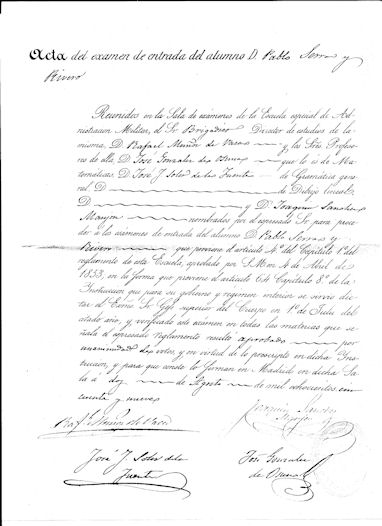 Acta del examen de entrada del alumno D. Pablo Serra y
Rivero
Reunidos en la Sala de examenes de la Escuela especial de Ad-
ministracion Militar, el Sr Brigadier Director de estudios de la
misma, D. Rafael Muñoz de Vaca y los Sres Profeso-
res de ella, D. José Gonzalez de que lo es de Ma-
tematicas, D. José J. Soler de la Fuente de Gramatica gene-
ral, D. de Dibujo lineal,
D. y D. Joaquin Sanchez
nombrados por el espresado Sr para proce-
der a los examenes de entrada del alumno D. Pablo Serra y
Rivero que previene el articulo 4º del Capitulo 1º del
reglamento de esta Escuela, aprobado por S. M. en 4 de Abril de
1853, en la forma que previene el articulo 64 Capitulo 8º de la
Instruccion que para su gobierno y regimen interior se sirvió dic-
tar el Exmo Sr superior del Cuerpo en 1º de Julio del
citado año, y verificado este examen en todas las materias que se-
ñala el espresado reglamento resultó aprobado por
unanimidad de votos, y en virtud de lo prescripto en dicha Ins-
truccion, y para que conste lo firman en Madrid en dicha Sa-
la a dos de Agosto de mil ochocientos cin-
cuenta y nueve
Raf. Muñoz de Vaca
José J. Soler de la
Fuente
José Gonzalez
de